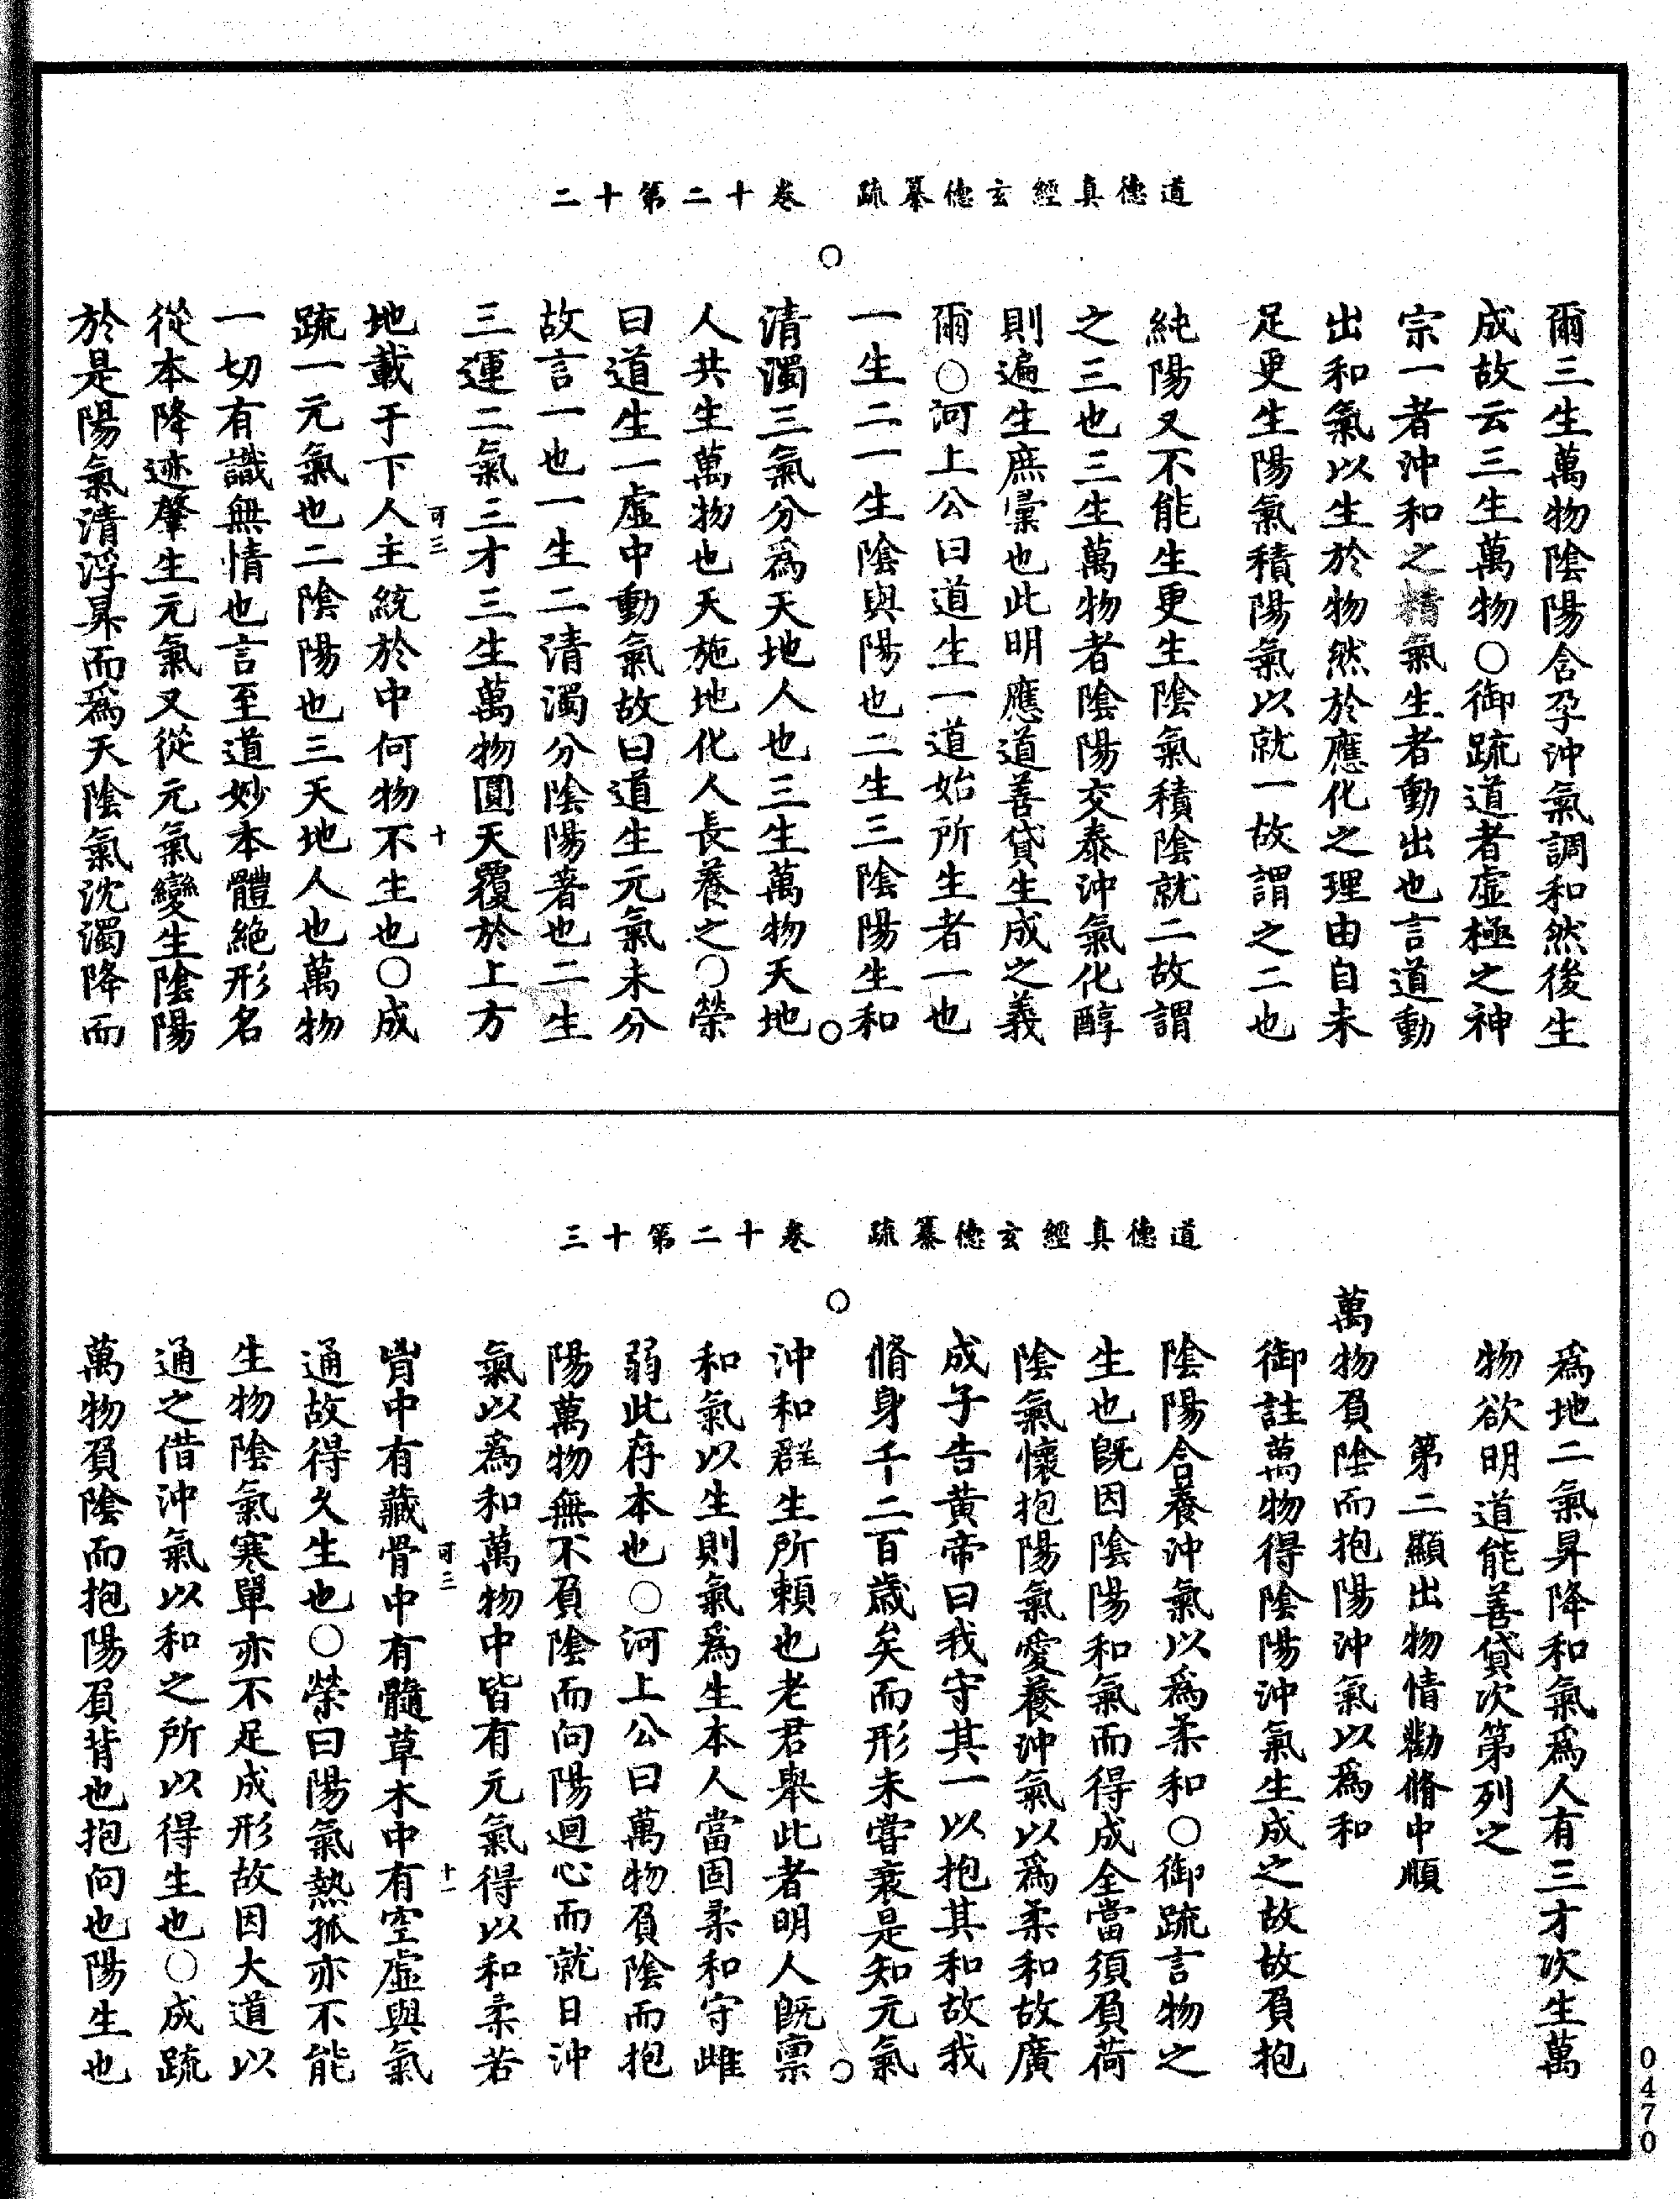 道德真經玄德纂疏　卷十二第十二
爾三生萬物陰陽含孕沖氣調和然後生
成故云三生萬物○御疏道者虛極之神
宗一者沖和之精氣生者動出也言道動
出和氣以生於物然於應化之理由自未
足更生陽氣積陽氣以就一故謂之二也
純陽又不能生更生陰氣積陰就二故謂
之三也三生萬物者陰陽交泰沖氣化醇
則遍生庶彙也此明應道善貸生成之義
爾○河上公曰道生一道始所生者一也
一生二一生陰與陽也二生三陰陽生和
清濁三氣分爲天地人也三生萬物天地
人共生萬物也天施地化人長養之○榮
曰道生一虛中動氣故曰道生元氣未分
故言一也一生二清濁分陰陽著也二生
三運二氣三才三生萬物圓天覆於上方
可三　十
地載于下人主統於中何物不生也○成
疏一元氣也二陰陽也三天地人也萬物
一切有識無情也言至道妙本體絕形名
從本降迹肇生元氣又從元氣變生陰陽
於是陽氣清浮昇而爲天陰氣沈濁降而
道德真經玄德纂疏　卷十二第十三
爲地二氣昇降和氣爲人有三才次生萬
物欲明道能善貸次第列之
第二顯出物情勸脩中順
萬物負陰而抱陽沖氣以爲和
御註萬物得陰陽沖氣生成之故故負抱
陰陽含養沖氣以爲柔和○御疏言物之
生也旣因陰陽和氣而得成全當須負荷
陰氣懷抱陽氣愛養沖氣以爲柔和故廣
成子告黄帝曰我守其一以抱其和故我
脩身千二百歲矣而形未嘗衰是知元氣
沖和群生所賴也老君舉此者明人旣禀
和氣以生則氣爲生本人當固柔和守雌
弱此存本也○河上公曰萬物負陰而抱
陽萬物無不負陰而向陽迴心而就日沖
氣以爲和萬物中皆有元氣得以和柔若
可三　十一
胷中有藏骨中有髓草木中有空虛與氣
通故得久生也○榮曰陽氣熱孤亦不能
生物陰氣寒單亦不足成形故因大道以
通之借沖氣以和之所以得生也○成疏
萬物負陰而抱陽負背也抱向也陽生也
0470